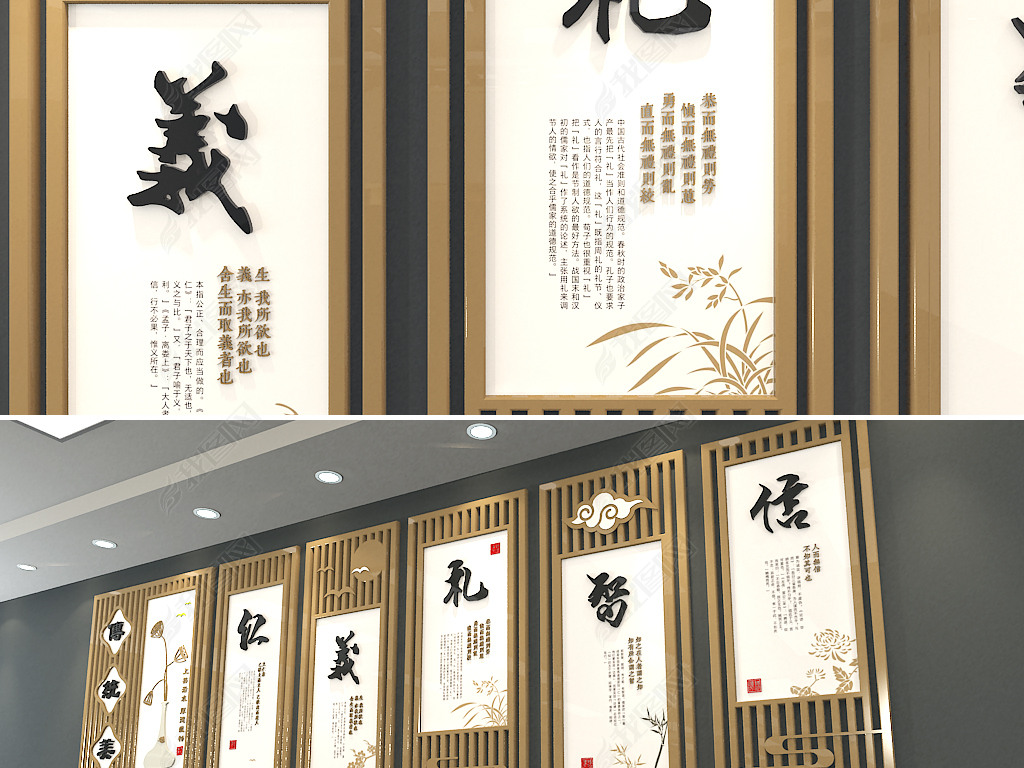 義
生 我所欲也
義 亦我所欲也
舍生而取義者也
本指公正、合理而应当做的。《
仁》:「君子之于天下也,无适也,
义之与比。」又:「君子喻于义,
利。」《孟子·离娄上》:「大人者
信,行不必果,惟义所在。」
礼
恭而無禮則勞
慎而無禮則葸
勇而無禮則亂
直而無禮則絞
中国古代社会准则和道德规范。春秋时的政治家子
产最先把「礼」当作人们行为的规范。孔子也要求
人的言行符合礼,这「礼」既指周礼的礼节、仪
式,也指人们的道德规范。荀子也很重视「礼」
把「礼」看作是节制人欲的最好方法。战国末和汉
初的儒家对「礼」作了系统的论述,主张用礼来调
节人的情欲,使之合乎儒家的道德规范。」
傳
統
美
上善若水 厚德載物
仁
義
礼
智
知之在人者謂之知
知有所合謂之智
信
人而無信
不知其可也